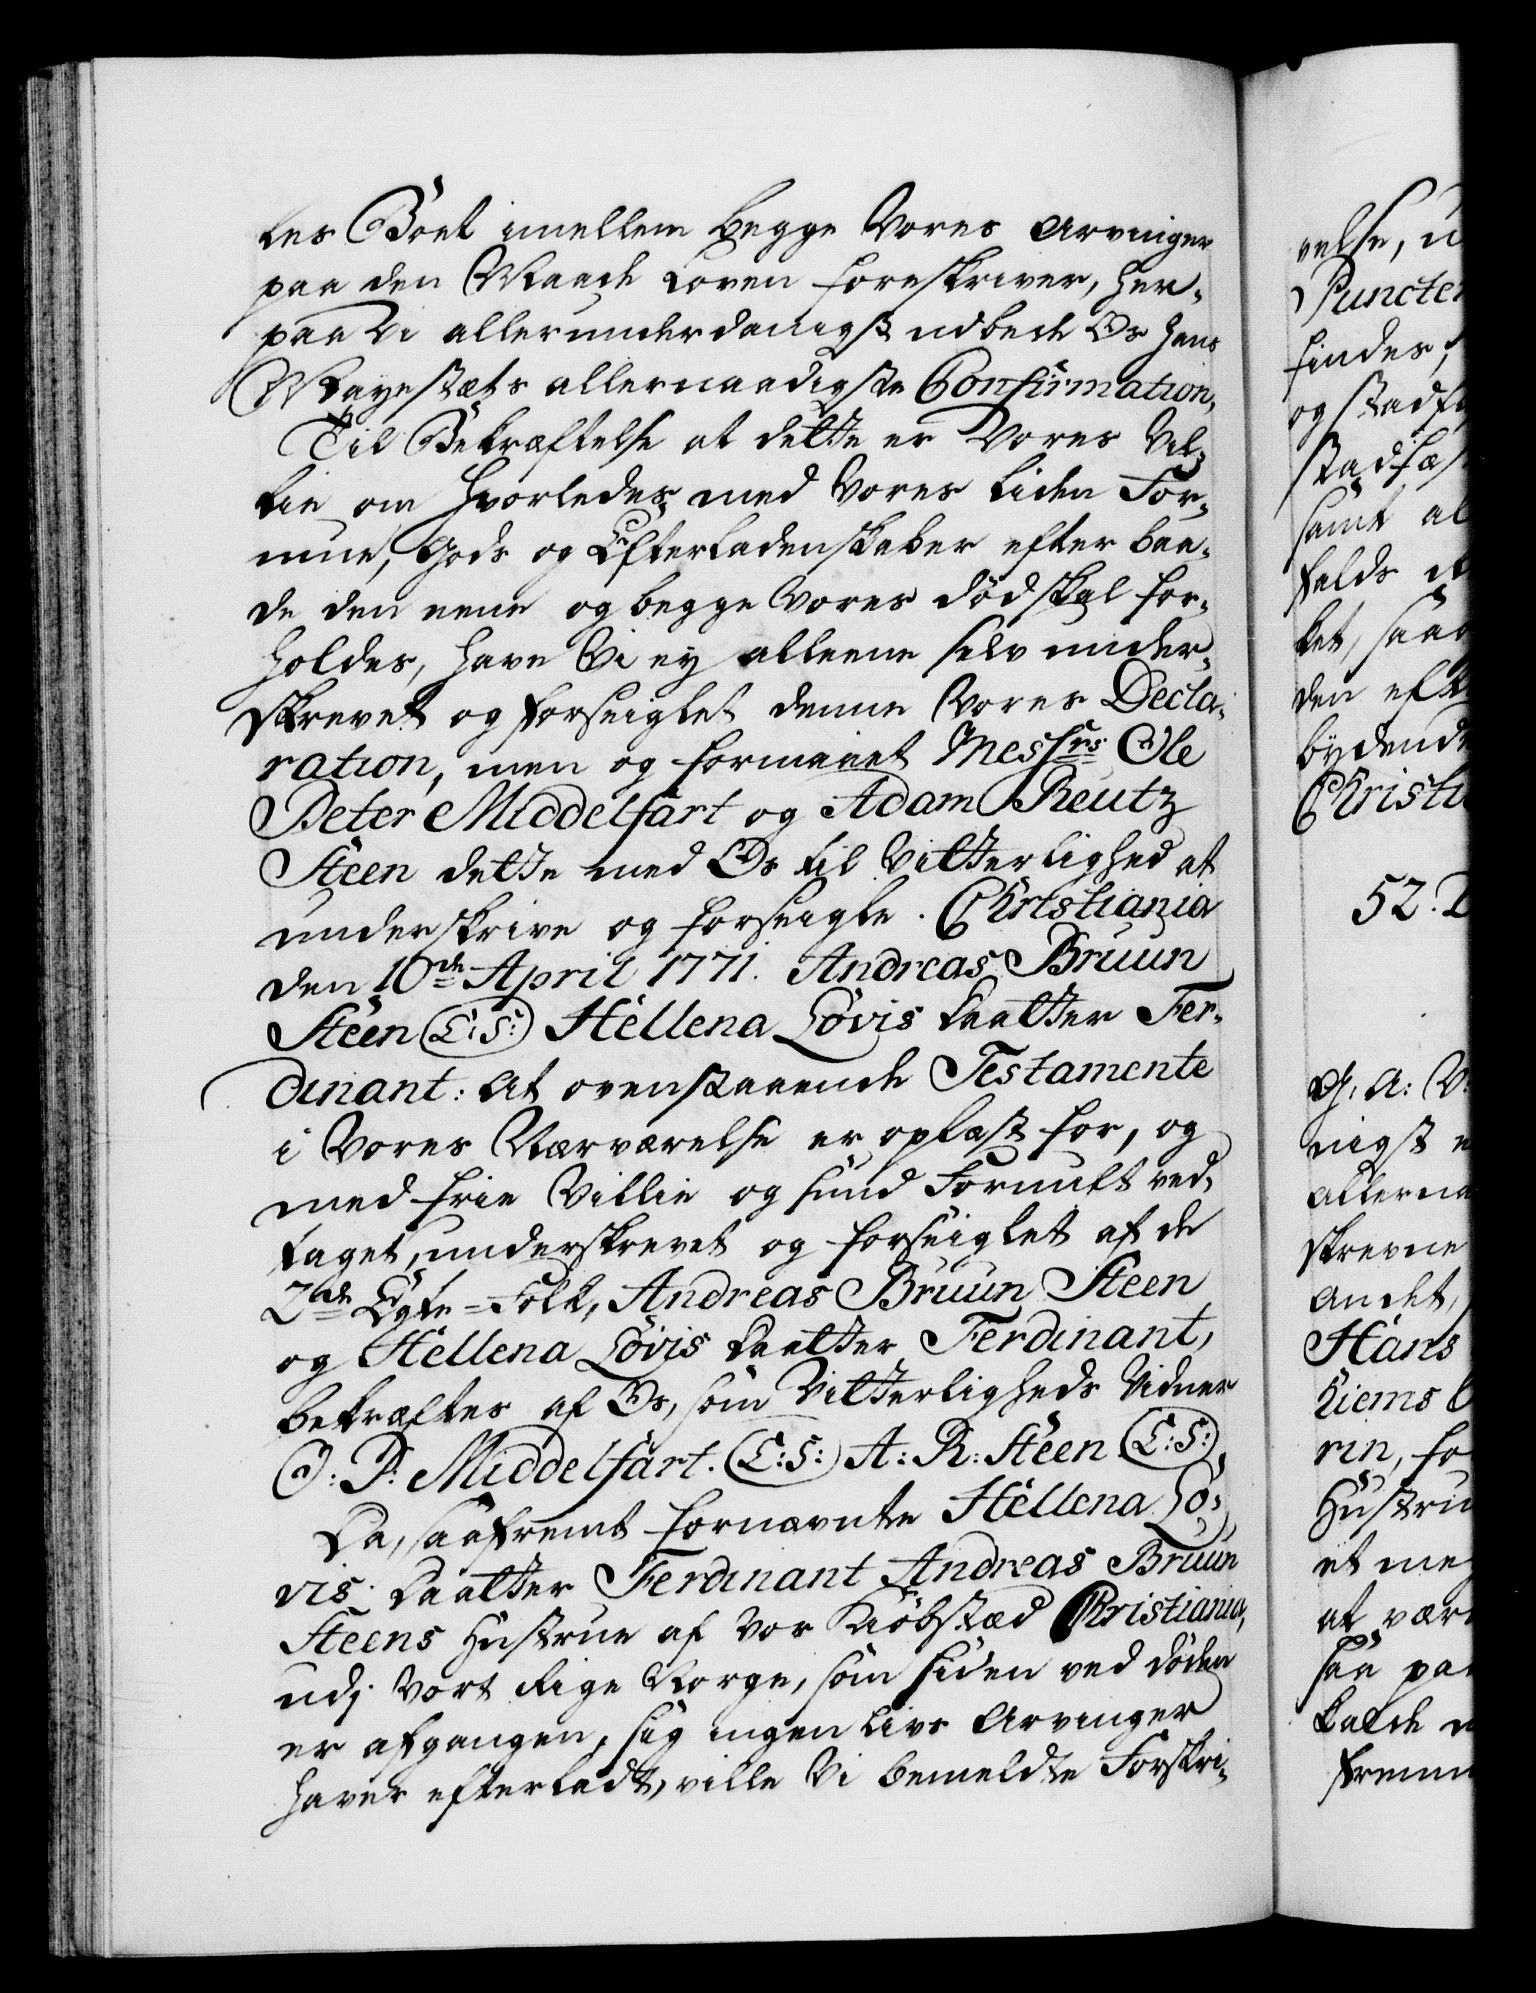 les Böet imellem begge Vores Arvinger
paa den Maade Loven foreskriver, her-
paa Vi allerunderdanigst udbede Os Hans
Mayestæts allernaadigste Confirmation,
Til Bekræftelse at dette er Vores Vil-
lie om hvorledes med Vores liden For-
mue, Gods og Efterladenskaber efter baa-
de den eene og begge Vores död skal for-
holdes, have Vi ey alleene selv under-
skrevet og forseiglet denne Vores Decla-
ration, men og formaaet Messrs Ole
Peter Middelfart og Adam Reutz
Steen dette med Os til Vitterlighed at
underskrive og forseigle. Christiania
den 10de April 1771. Andreas Bruun
Steen (L:S:) Hellena Lövis Daatter Fer-
dinant: At ovenstaaende Testamente
i Vores Nærværelse er oplæst for, og
med frie Villie og sund Fornuft ved-
taget, underskrevet og forseiglet af de
2de Egte-Folk, Andreas Bruun Steen
og Hellena Lövis Daatter Ferdinant,
bekræftes af Os, som Vitterligheds Vidner
O: P: Middelfart. (L:S:) A: R: Steen (L:S:)
Da, saafremt fornævnte Hellena Lö-
vis Daatter Ferdinant Andreas Bruun
Steens Hustrue af Vor Kiöbstæd Christiania,
udj Vort Rige Norge, som siden ved döden
er afgangen, sig ingen Livs Arvinger
haver efterladt, ville Vi bemeldte Forskri-
velse, u
Puncter
findes,
og stadf
stadfæs
samt al
falds
let, saa
den eft
bydende
Christi
52.
G. A: V:
nigst
Allerna
skrevne
andet,
Hans
hiems
rin, fo
Hustru
et me
at være
saa paa
kalde
frem